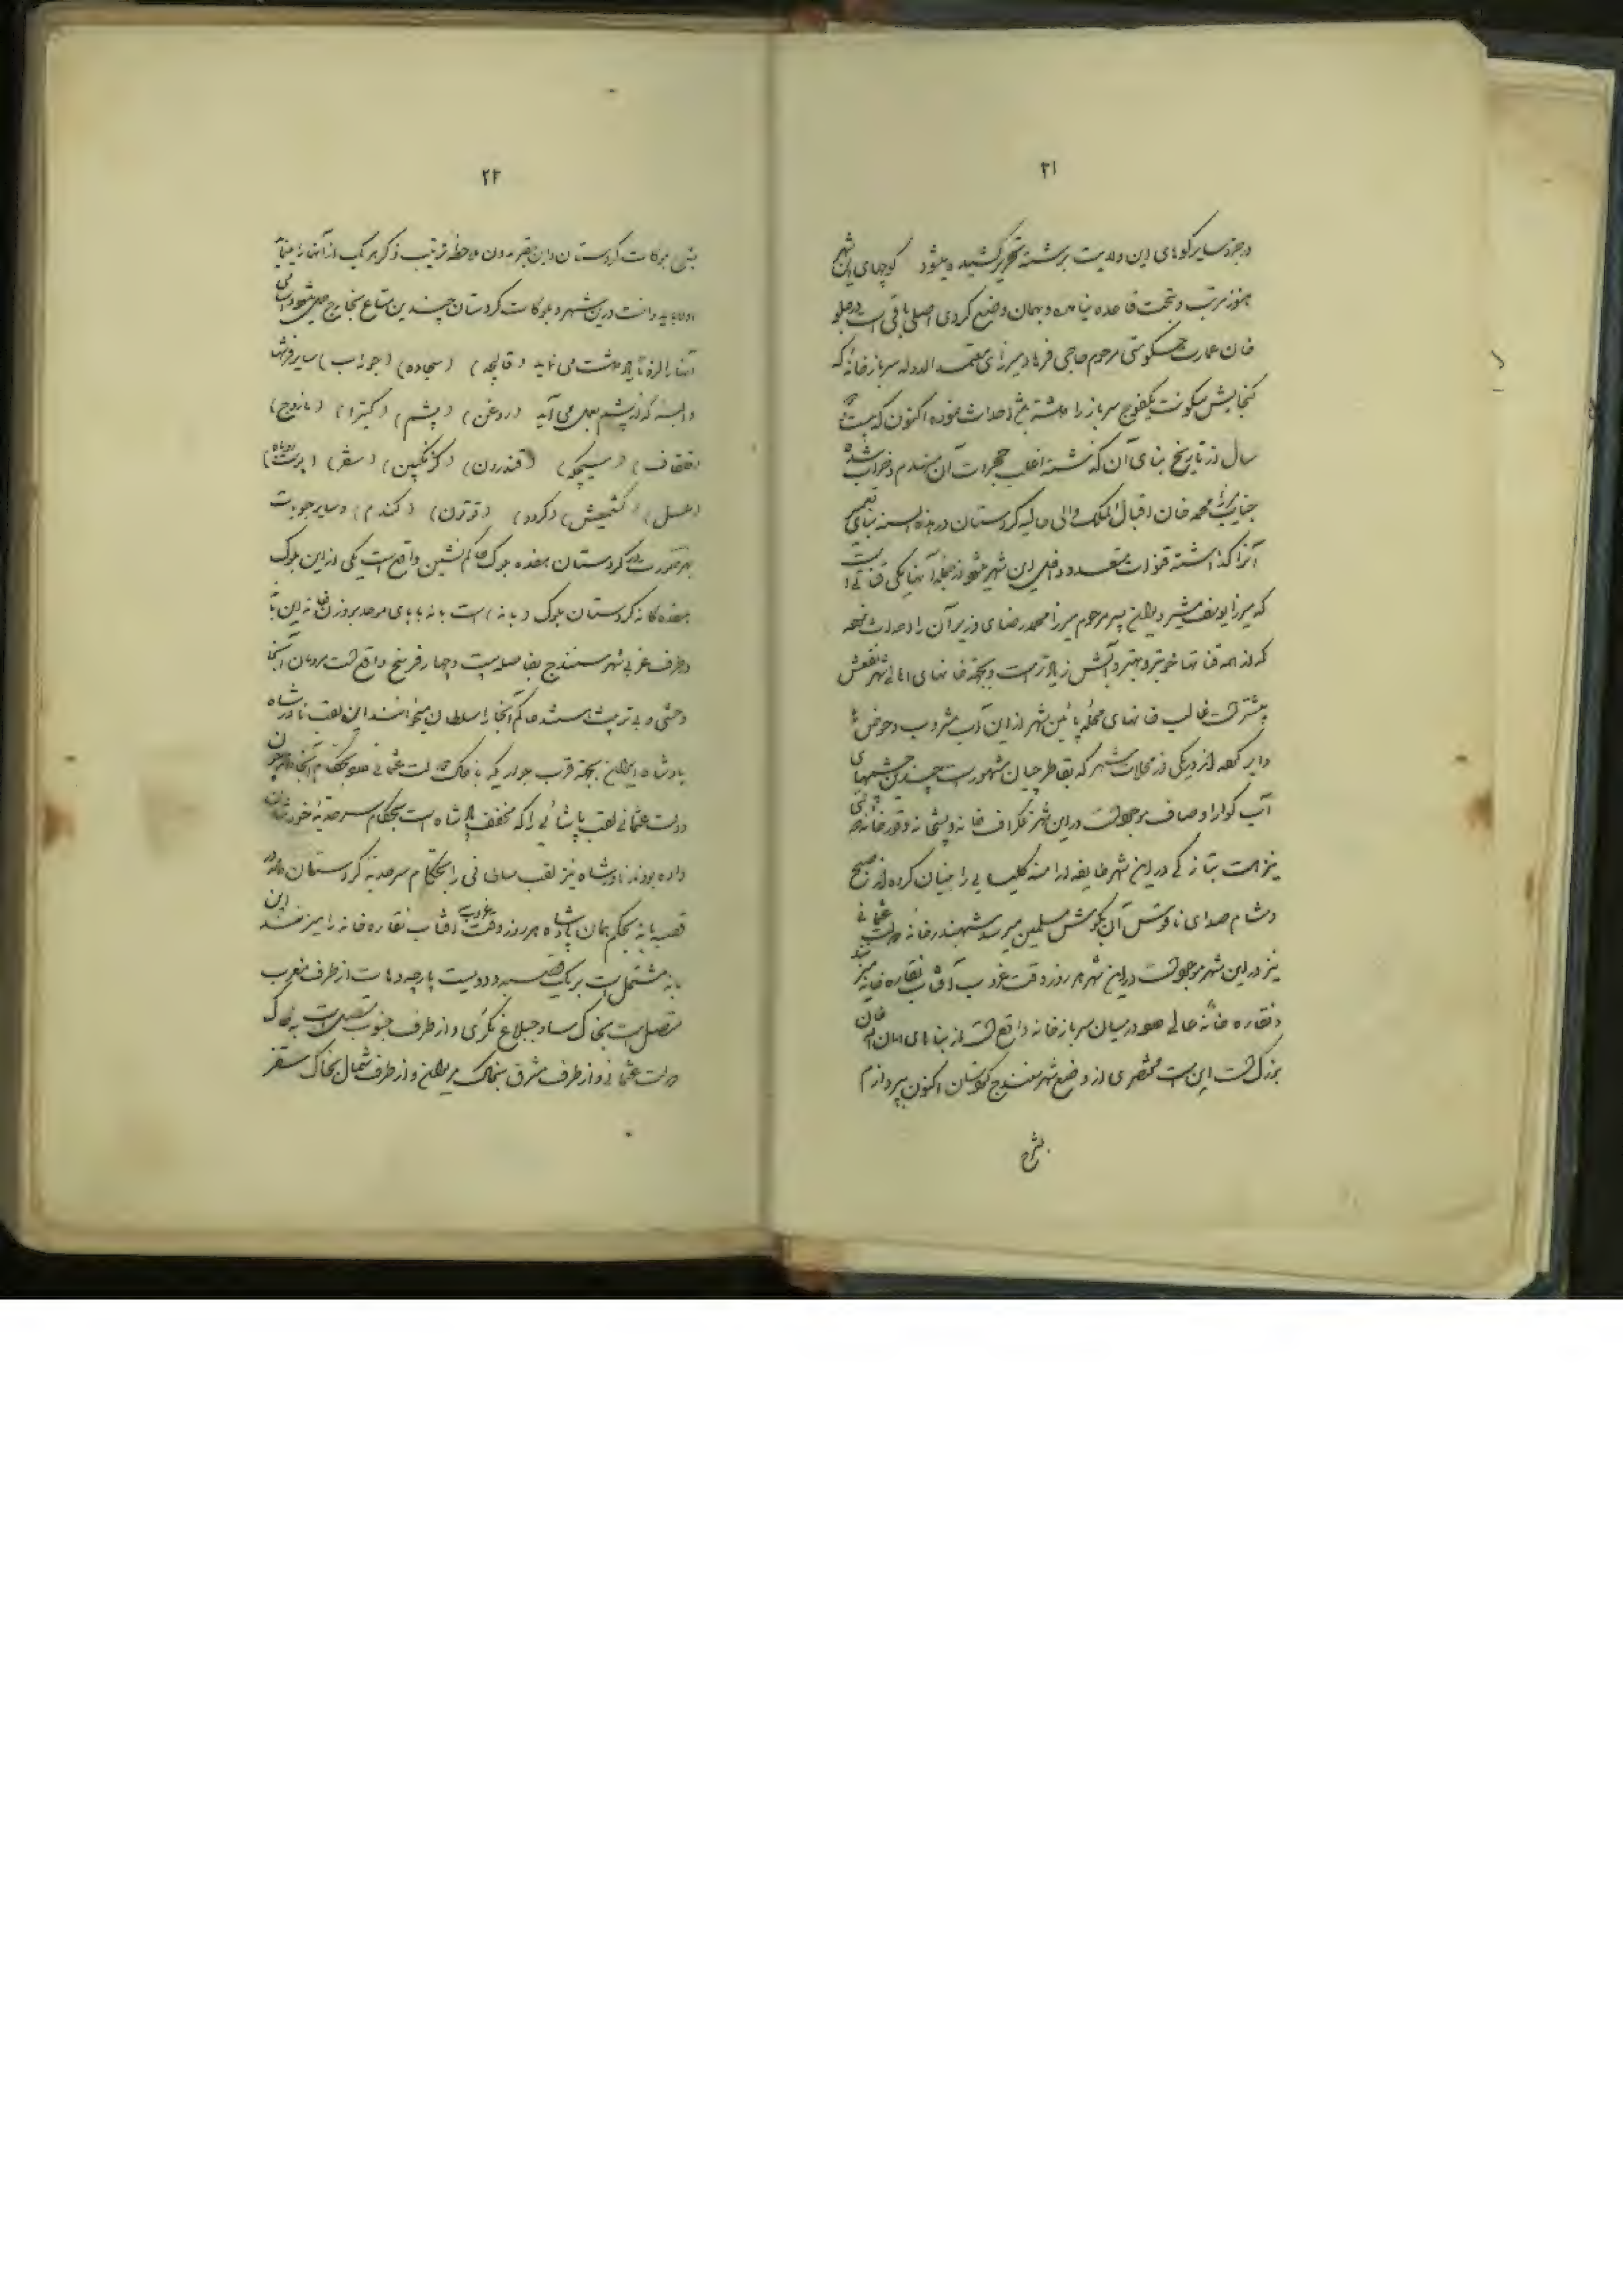 ۲۱
و جزو سایر کوهای این ولایت برشته تحریر کشیده میشود کوچهای این شهر
هنوز مرتب و تحت قاعده نیامده و بهمان وضع کردی اصلی باقی است در جلو
خان عمارت حکومتی مرحوم حاجی فرهاد میرزای معتمد الدوله سربازخانهٔ که
گنجایش سکونت یکفوج سرباز را داشته احداث نموده اکنون که بیست
سال از تاریخ بنای آن گذشته اغلب حجرات آن منهدم و خراب شده
جناب میرزا محمد خان اقبال الملک والی حالیه کردستان در هذه السنه بنای تعمیر
آنرا گذاشته قنوات متعدد داخل این شهر میشود از جمله آنها یکی قناتی است
که میرزا یوسف مشیر دیوان پسر مرحوم میرزا محمد رضای وزیر آن را احداث نموده
که از همه قناتها خوبتر و بهتر و آبش زیادتر است و بجهة خانهای اهالی شهر نفعش
بیشتر است غالب خانهای محله پائین شهر از این آب مشروب و حوض ها
دایر نموده‌اند در یکی از محلات شهر که بقاطرچیان مشهور است چندین چشمهای
آب گوارا و صاف موجود است در این شهر تلگراف خانه و پستخانه و قورخانه
نیز هست بتازگی در این شهر طایفه ارامنه کلیسایی را بنیان کرده‌اند صبح
و شام صدای ناقوس آن بگوش مسلمین میرسد شهبندرخانه دولت عثمانی
نیز در این شهر موجود است در این شهر هر روز وقت غروب آفتاب نقاره خانه میزنند
و نقاره خانه حالیه در میان سربازخانه واقع است از بناهای امان الله خان
بزرگ است این است مختصری از وضع شهر سنندج کردستان اکنون بپردازم
بشرح
۲۲
بلوکات کردستان و این حقیر بدون ملاحظه ترتیب ذکر هر یک از آنها را مینماید
اولا باید دانست در این شهر و بلوکات کردستان چندین متاع بخارج حمل میشود و اسامی
آنها را یادداشت می نماید (قالیچه) (سجاده) (جوراب) سایر فرشها
و البسه که از پشم بعمل می آید (روغن) (پشم) (کتیرا) (مازوج)
(قلقاف) (سیچکه) (قندرون) (گزنگبین) (سقز) (پوست روباه)
(عسل) (کشمیش) (گردو) (توتون) (گندم) و سایر حبوبات
بهر صورت در کردستان هفده بلوک حاکم نشین واقع است یکی از این بلوک
هفده گانه کردستان بلوک (بانه) است بانه با بای موحده بروزن خانه این بانه
در طرف غربی شهر سنندج بفاصله بیست و چهار فرسخ واقع است مردمان آنجا
وحشی و بی تربیت هستند حاکم آنجا را سلطان میخوانند این لقب نادرشاه
پادشاه ایران بجهة قرب جواریکه با خاک دولت عثمانی بحکام آنجا داده چون
دولت عثمانی لقب پاشائی را که مخفف پادشاه است بحکام سرحدیه خودشان
داده بودند نادرشاه نیز لقب سلطانی را بحکام سرحدیه کردستان داده در
قصبه بانه بحکم همان پادشاه هر روز وقت غروب آفتاب نقاره خانه را میزنند این
بانه مشتمل است بر یک قصبه و دویست پارچه دهات از طرف مغرب
متصل است بخاک ساوجبلاغ مکری و از طرف جنوب متصل است به خاک
دولت عثمانی و از طرف مشرق بخاک مریوان و از طرف شمال بخاک سقز